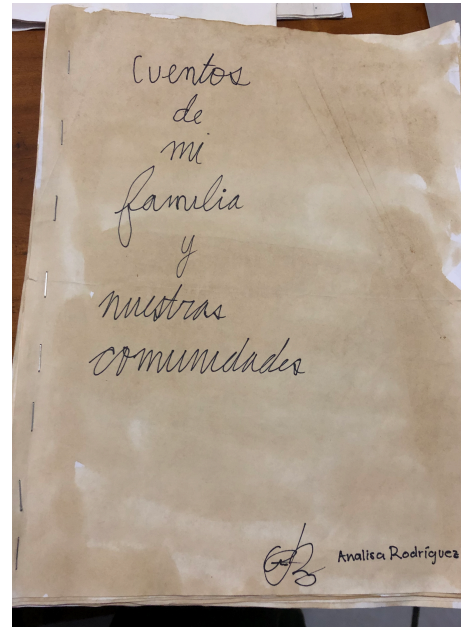 Cuentos
de
mi
familia
y
nuestras
comunidades
Analisa Rodríguez